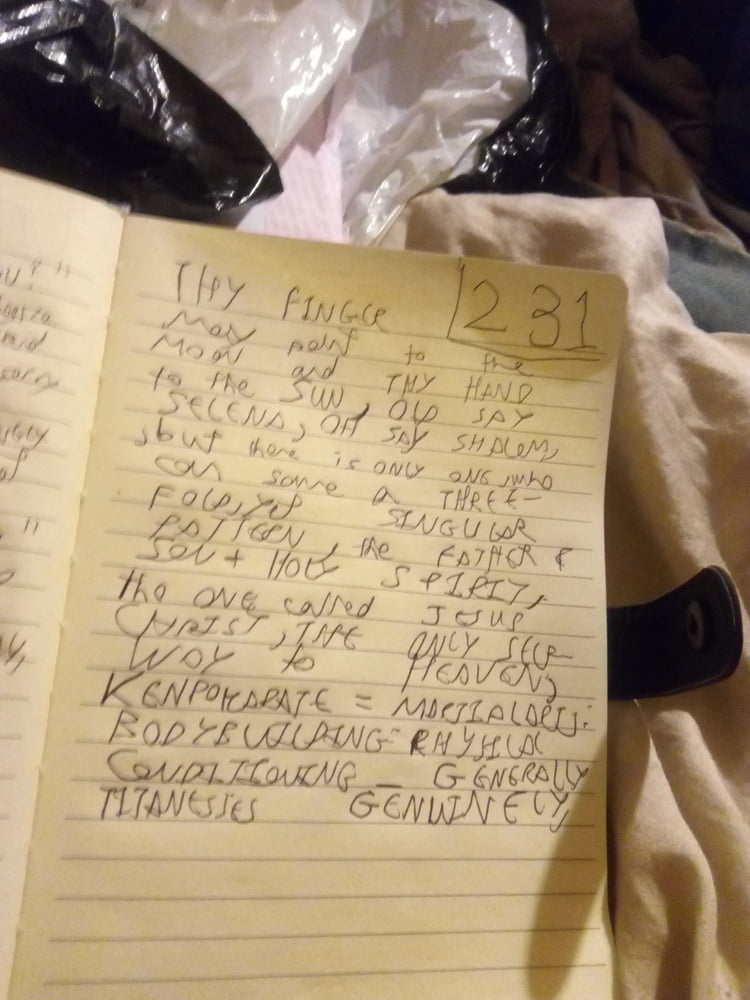 231
THY FINGER
May point to the
MOON and THY HAND
to the SUN, OLD SAY
SELENA, OH SAY SHALOM,
, but there is ONLY ONE, who
can some a THREE-
FOLD, yet SINGULAR
PATTERN, the FATHER &
SON + HOLY SPIRIT,
the ONE called JESUS
CHRIST, THE ONLY SELF
WAY to HEAVEN;
KENPOKARATE = MARTIALARTS:
BODYBUILDING: PHYSICAL
CONDITIONING _ GENERALLY
TITANESSES GENUINELY,
u? "
said
sorry
of
"